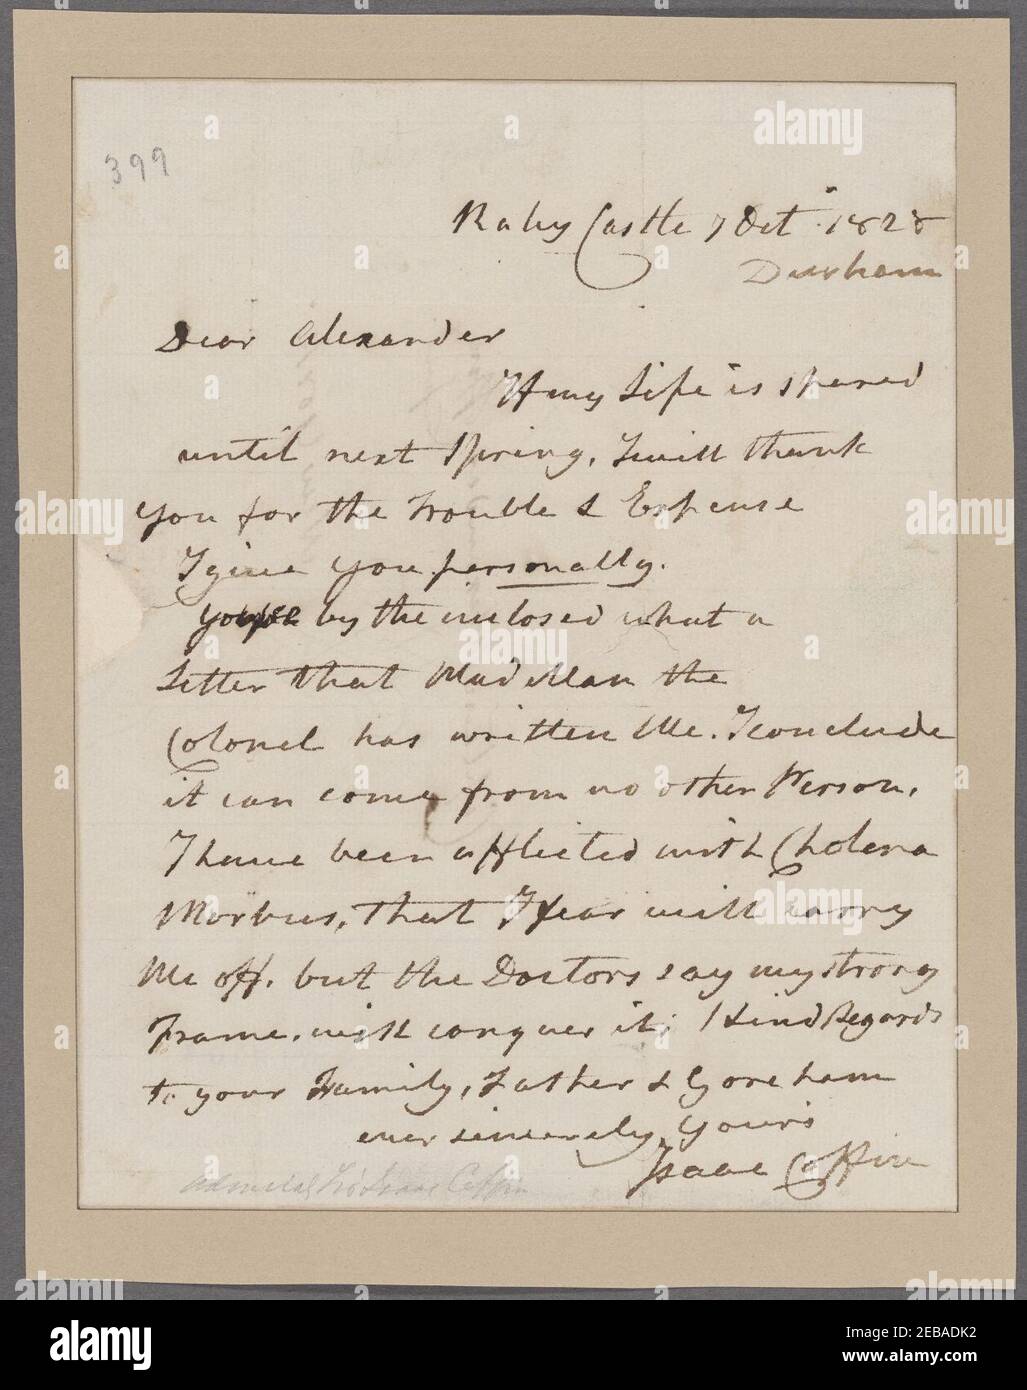 399
Raby Castle 7 Oct. 1828
Durham
Dear Alexander
If my Life is spared
until next Spring, I will thank
you for the trouble & Expense
I give you personally.
by the inclosed what a
Letter that Mad Man the
Colonel has written Me. I conclude
it can come from no other Person.
I have been afflicted with Cholera
Morbus, that I fear will carry
Me off. but the Doctors say my strong
Frame, will conquer it; Kind Regards
to your Family, Father & Goreham
ever sincerely Yours
Isaac Coffin
Admiral Sir Isaac Coffin
alamy
alamy
Image ID: 2EBADK2
www.alamy.com